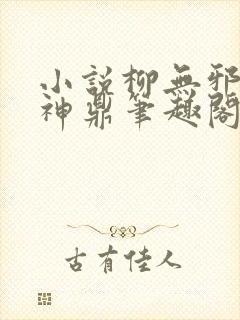 小說柳無邪
神鼎筆趣閣
古有佳人